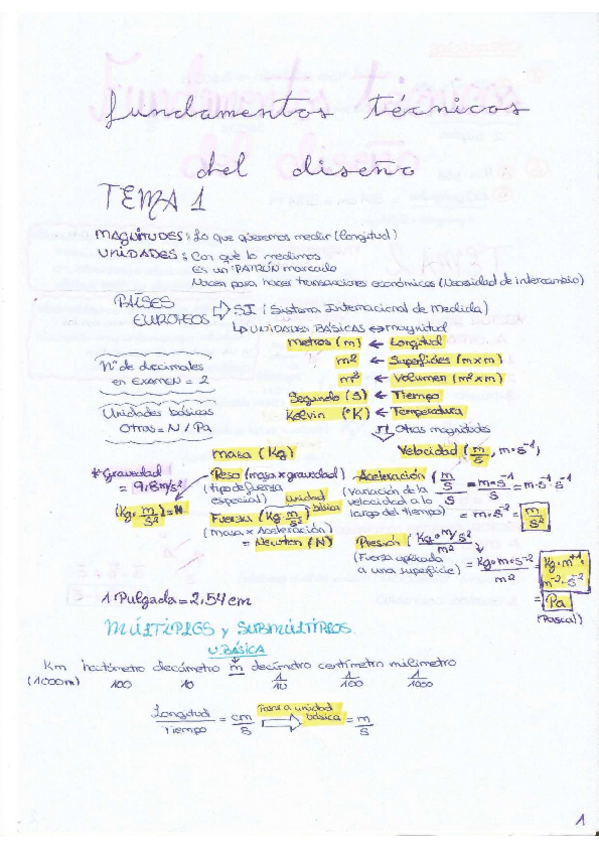 fundamentos técnicos
del diseño
TEMA 1
MAGNITUDES: Lo que queremos medir (Longitud)
UNIDADES: Con qué lo medimos
Es un PATRÓN marcado
Nacen para hacer transacciones económicas (Necesidad de intercambio)
PAÍSES EUROPEOS ⇨ SI (Sistema Internacional de Medida)
↳ UNIDADES BÁSICAS ↔ magnitud
Metros (m) ← Longitud
m² ← Superficies (m x m)
m³ ← Volumen (m² x m)
Segundo (S) ← Tiempo
Kelvin (°K) ← Temperatura
Nº de decimales
en EXAMEN = 2
Unidades básicas
Otras = N / Pa
Otras magnitudes
masa (Kg)
Velocidad (m/s, m·s⁻¹)
* Gravedad
= 9,8 m/s²
(Kg · m/s²) = N
Peso (masa x gravedad)
(tipo de fuerza
especial)
unidad básica
Fuerza (Kg · m/s²)
(Masa x Aceleración)
= Newton (N)
Aceleración (m/s/s = m·s⁻¹/s = m·s⁻¹·s⁻¹
(Variación de la
velocidad a lo
largo del tiempo)
= m·s⁻² = m/s²
Presión (Kg·m/s²/m²
(Fuerza aplicada
a una superficie)
= Kg·m·s⁻²/m² = Kg·m⁺¹·m⁻²·s⁻²
= Pa
(Pascal)
1 Pulgada = 2,54 cm
MÚLTIPLOS y SUBMÚLTIPLOS
U. BÁSICA
Km hectómetro decámetro m decímetro centímetro milímetro
(1000m) 100 10 1/10 1/100 1/1000
Longitud/Tiempo = cm/s Pasar a unidad básica ⇨ = m/s
1